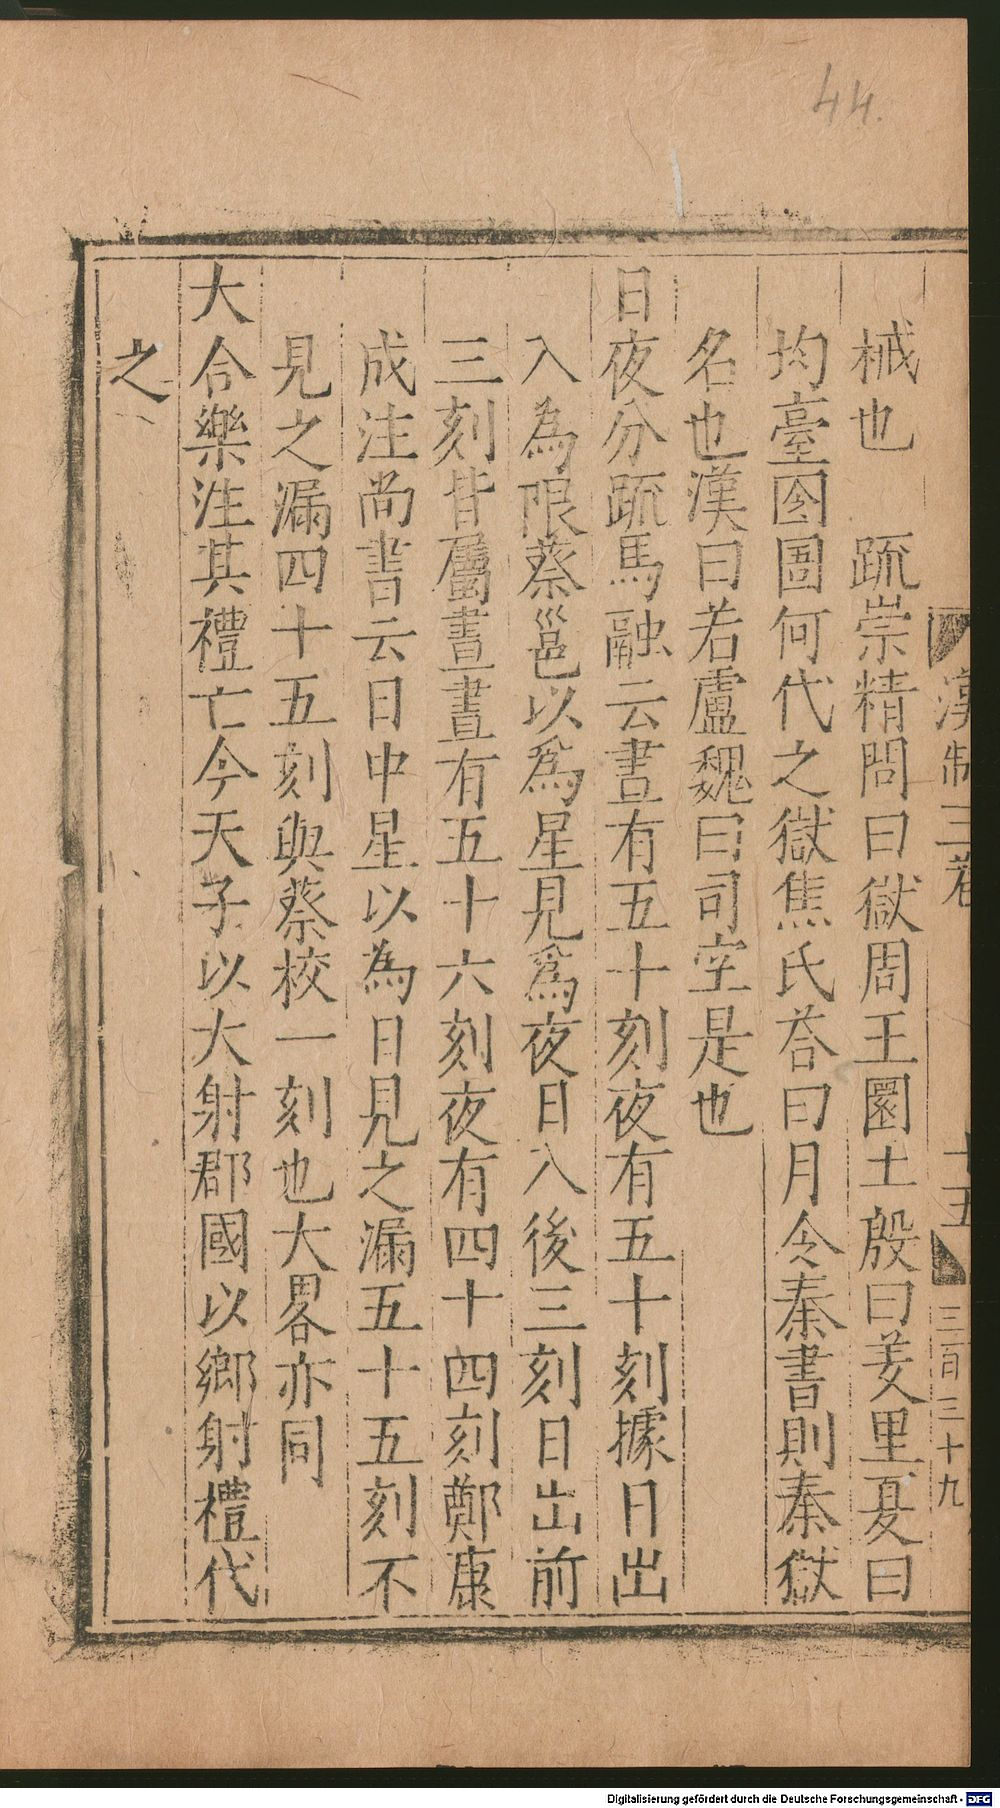 44.
漢制三卷 十五 三百三十九
械也 疏崇精問曰獄周王圜土殷曰羑里夏曰
均臺囹圄何代之獄焦氏荅曰月令秦書則秦獄
名也漢曰若盧魏曰司空是也
日夜分疏馬融云晝有五十刻夜有五十刻據日出
入為限蔡邕以爲星見爲夜日入後三刻日出前
三刻皆屬晝晝有五十六刻夜有四十四刻鄭康
成注尚書云日中星以為日見之漏五十五刻不
見之漏四十五刻與蔡校一刻也大畧亦同
大合樂注其禮亡今天子以大射郡國以鄉射禮代
之
Digitalisierung gefördert durch die Deutsche Forschungsgemeinschaft - DFG